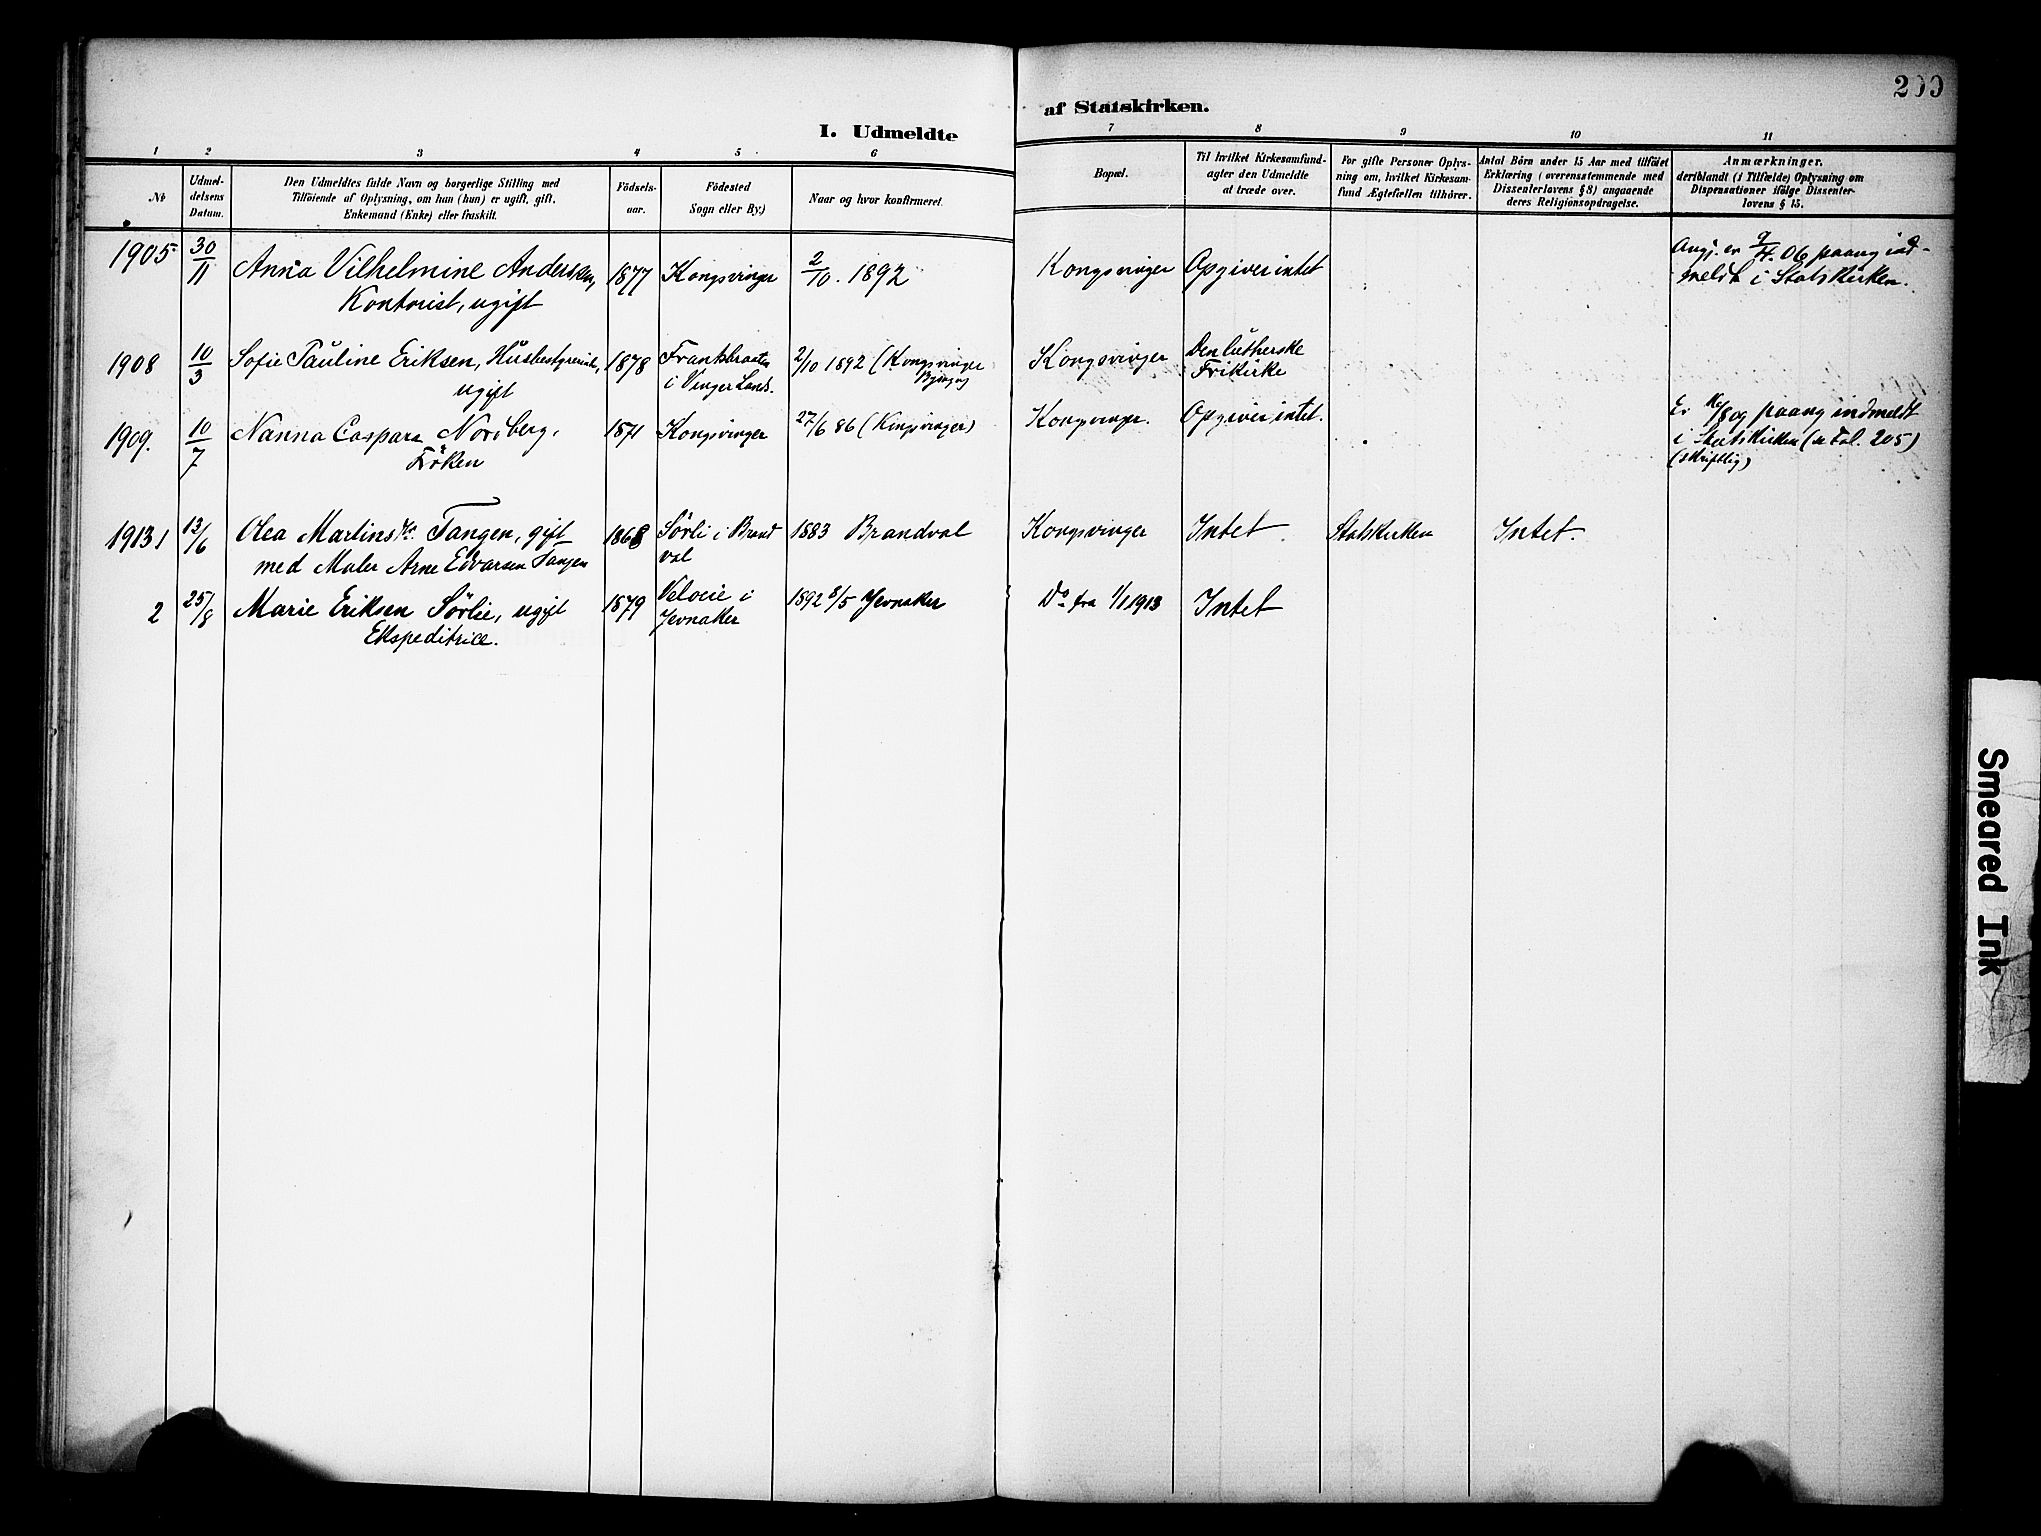 200
I. Udmeldte af Statskirken.
1 2 3 4 5 6 7 8 9 10 11
No
Udmeldelsens Datum.
Den Udmeldtes fulde Navn og borgerlige Stilling med
Tilføiende af Oplysning, om han (hun) er ugift, gift,
Enkemand (Enke) eller fraskilt.
Födselsaar.
Födested
Sogn eller By.)
Naar og hvor konfirmeret.
Bopæl.
Til hvilket Kirkesamfund-
agter den Udmeldte
at træde over.
For gifte Personer Oplys-
ning om, hvilket Kirkesam-
fund Ægtefællen tilhörer.
Antal Börn under 15 Aar med tilföiet
Erklæring (overensstemmende med
Dissenterlovens § 8) angaaende
deres Religionsopdragelse.
Anmærkninger.
deriblandt (i Tilfælde) Oplysning om
Dispensationer ifölge Dissenter-
lovens § 15.
1905 30/11 Anna Vilhelmine Andersen, 1877 Kongsvinger 2/10. 1892 Kongsvinger Opgiver intet
Kontorist, ugift
Angj. er 9/4. 06 paany ind-
meldt i Statskirken.
1908 10/3 Sofie Pauline Eriksen, Husbestyrerinde, 1878 2/10 1892 (Kongsvinger Kongsvinger Den lutherske
ugift i Vinger Lands. Frikirke
1909. 10/7 Nanna Caspara Norberg, 1871 Kongsvinger 27/6 86 (Kongsvinger) Kongsvinger. Opgiver intet.
Fröken
Er paany indmeldt
i Statskirken (se Fol. 205)
(skriftlig)
1913 1 13/6 Olea Martins Tangen, gift 1868 Sörli i Brand 1883 Brandval Kongsvinger Intet. Statskirken Intet.
med Maler Arne Edvarsen Tangen val
2 25/8 Marie Eriksen Sörlie, ugift 1879 i 1892 8/5 Jevnaker Do fra 1/1 1913 Intet
Ekspeditrice. Jevnaker
Smeared Ink